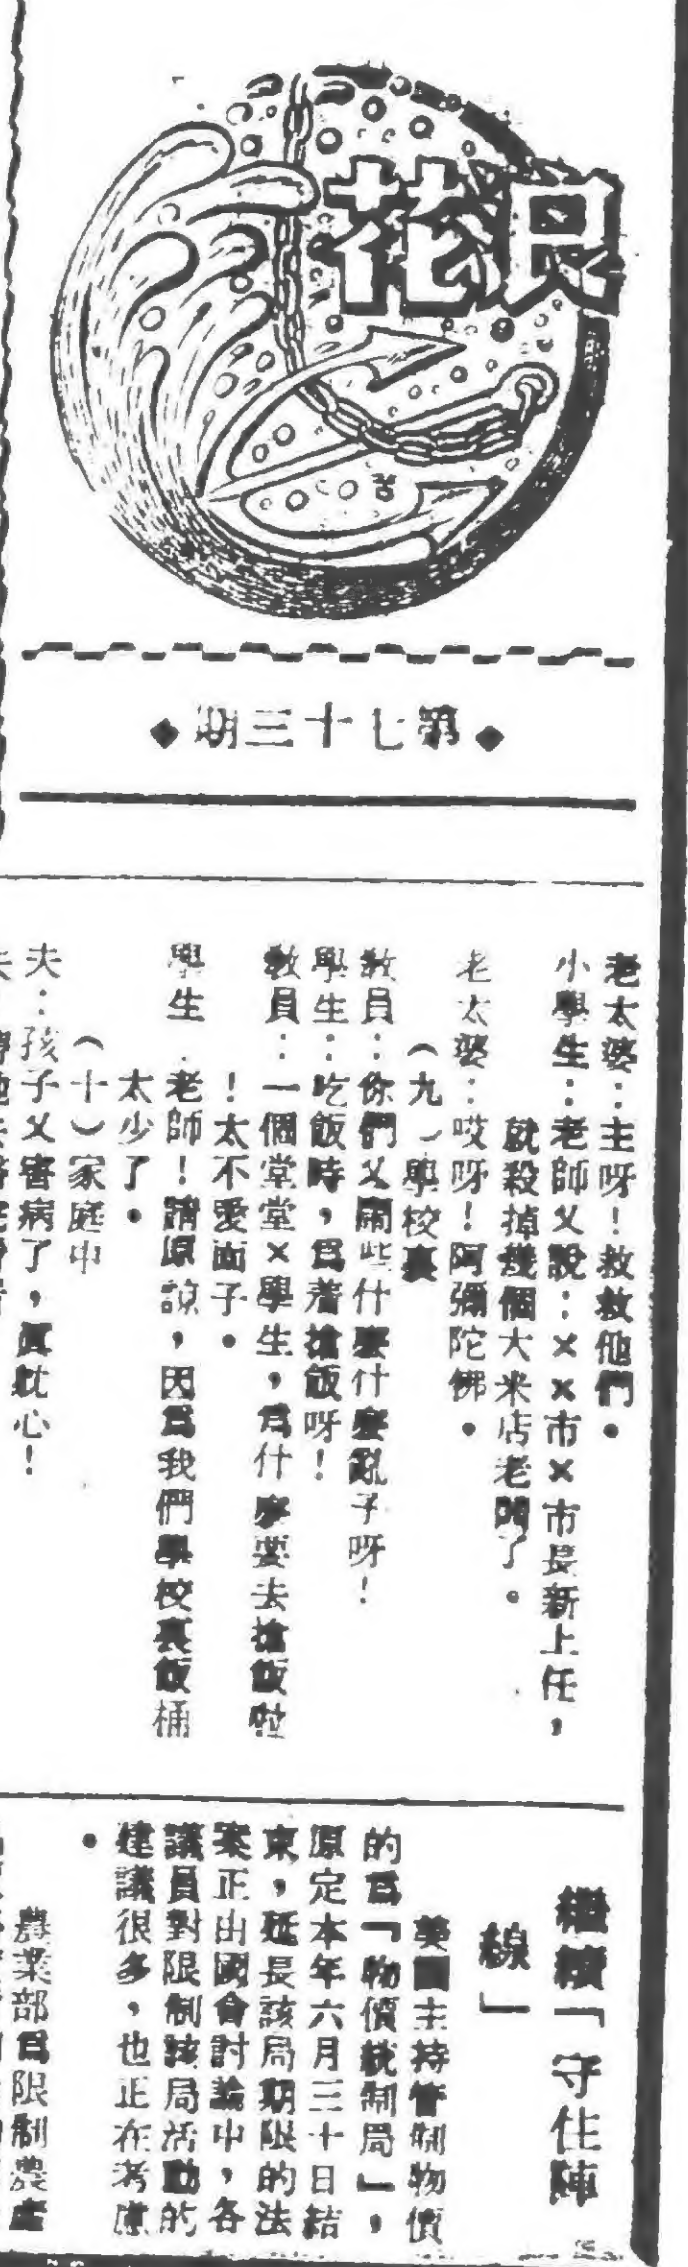 浪花
◆第七十三期◆
老太婆：主呀！救救他們。
小學生：老師又說：××市×市長新上任，
就殺掉幾個大米店老闆了。
老太婆：哎呀！阿彌陀佛。
（九）學校裏
教員：你們又鬧些什麼什麼亂子呀！
學生：吃飯時，爲着搶飯呀！
教員：一個堂堂×學生，爲什麼要去搶飯啦
！太不愛面子。
學生：老師！請原諒，因爲我們學校裏飯桶
太少了。
（十）家庭中
夫：孩子又害病了，眞躭心！
繼續「守住陣
線」
美國主持管制物價
的爲「物價統制局」，
原定本年六月三十日結
束，延長該局期限的法
案正由國會討論中，各
議員對限制該局活動的
建議很多，也正在考慮
。
農業部爲限制農產